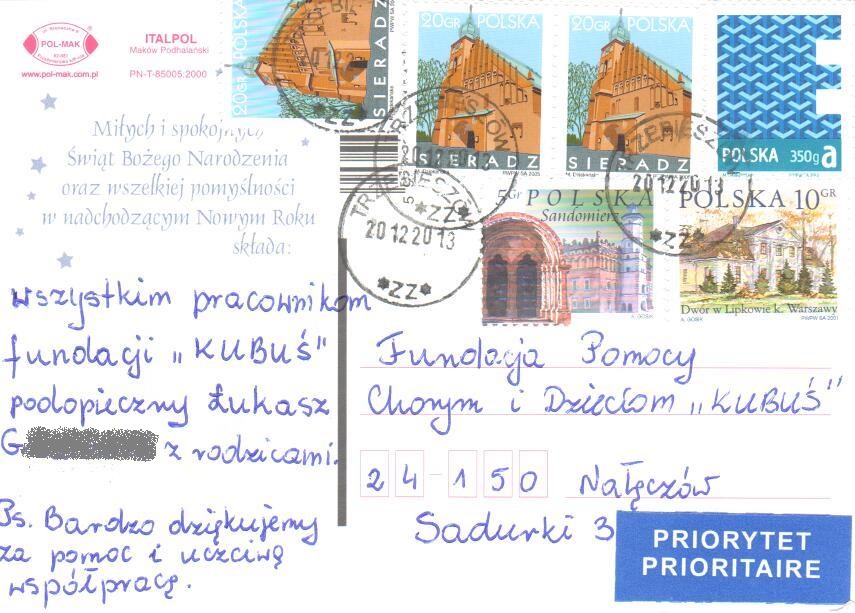 POL-MAK
www.pol-mak.com.pl
ITALPOL
Maków Podhalański
PN-T-85005:2000
20GR POLSKA
SIERADZ
20GR POLSKA
SIERADZ
20GR POLSKA
SIERADZ
POLSKA 350g a
TRZEBIESZÓW
20 12 20 13
*ZZ*
5GR POLSKA
Sandomierz
POLSKA 10 GR
Dwór w Lipkowie k. Warszawy
PWPW SA 2001
Miłych i spokojnych
Świąt Bożego Narodzenia
oraz wszelkiej pomyślności
w nadchodzącym Nowym Roku
składa:
wszystkim pracownikom
fundacji „KUBUŚ"
podopieczny Łukasz
G z rodzicami.
Ps. Bardzo dziękujemy
za pomoc i uczciwą
współpracę.
Fundacja Pomocy
Chorym i Dzieciom „KUBUŚ"
24-150 Nałęczów
Sadurki 3
PRIORYTET
PRIORITAIRE